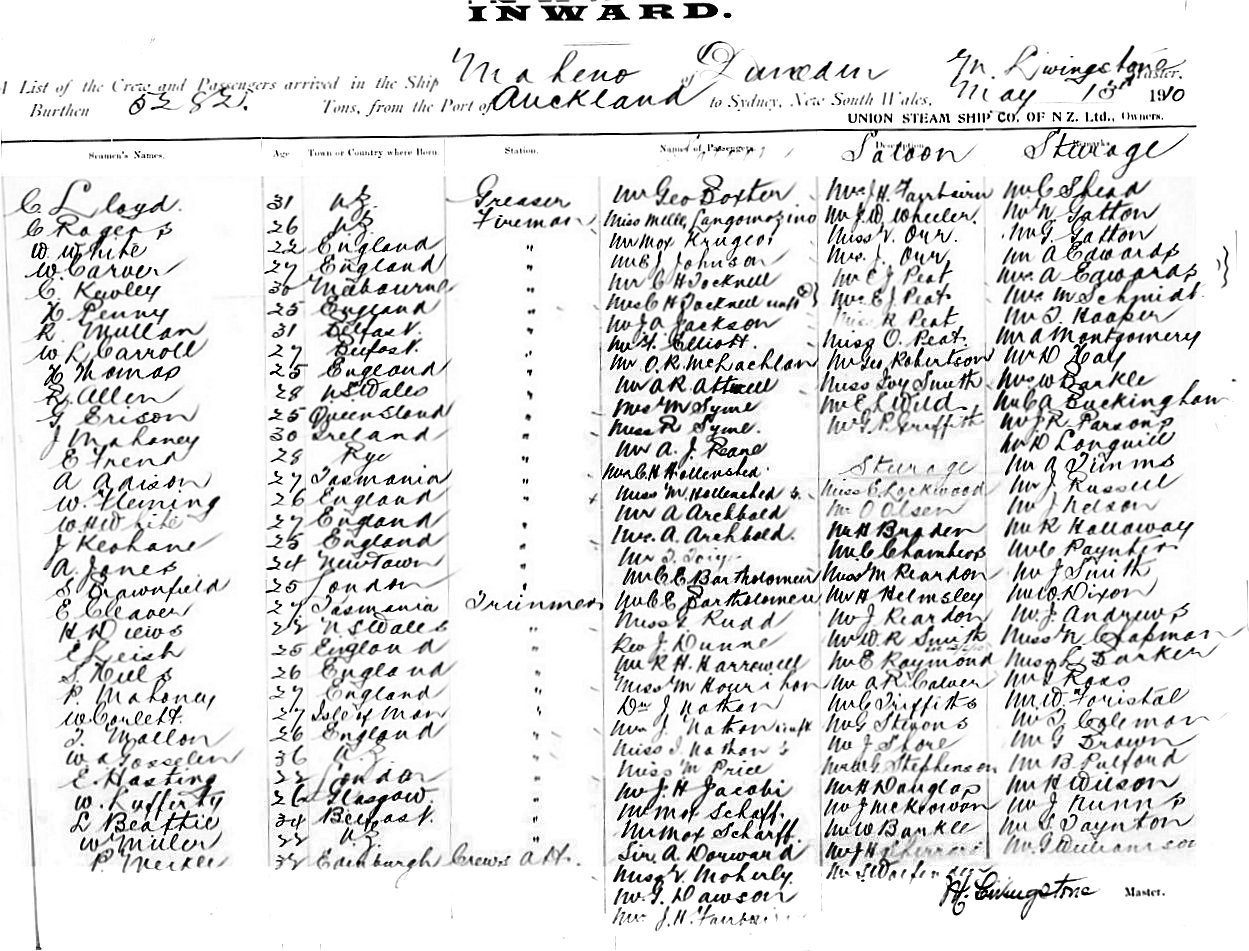 INWARD.
A List of the Crew and Passengers arrived in the Ship Maheno of Dunedin M. Livingstone Master.
Burthen 5282 Tons, from the Port of Auckland to Sydney, New South Wales, May 13th 1910
UNION STEAM SHIP CO. OF N.Z. Ltd., Owners.
Seamen's Names. Age Town or Country where Born. Station. Names of Passengers. Saloon Steerage
C Lloyd. 31 N.Z. Greaser Mr Geo Boxter Mrs J.H. Fairbairn Mr C Shead
C Rogers 26 N.Z. Fireman Miss Millie Langomozino Mr J.W. Wheeler. Mr N. Gatton
W. White 22 England " Mr Max Krugeor Miss V. Orr. Mr G. Gatton
W. Carver 27 England " Mr E J Johnson Mrs J. Orr Mr A Edwards
C. Kewley 30 Melbourne " Mr C H Tocknell Mr E J Peat Mrs A Edwards
H Penny 25 England " Mrs C H Tocknell Mrs E J Peat Mrs M Schmidt
R. Mullan 31 Belfast. " Mr J A Jackson Miss R Peat Mr T. Hooper
W L Carroll 27 Belfast. " Elliott. Miss O. Peat. Mr A Montgomery
H Thomas 25 England " Mr O.R. McLachlan Mr Geo Robertson Mr D Hay
R. Allen 28 NSWales " Mr A R Attwell Miss Ivy Smith Mrs W Barkle
G Erison 25 Queensland " Mrs M Syme Mr E L Wild Mr C A Buckingham
J Mahoney 30 Ireland " Miss R Syme. Mr G.P. Griffith Mr J R Parsons
E Frend 28 Rye " Mr A. J. Peane Mr D Longuill
A Adison 27 Tasmania " Mrs C H Hollenshed. Steerage Mr A Timms
W. Fleming 26 England " Miss M Hollenshed Miss E Lockwood Mr J. Russell
W H White 27 England " Mr A Archbold Mr O Olsen Mr J Nelson
J Keohane 25 England " Mrs. A. Archbold. Mr H Braden Mr R Hallaway
A. Jones 24 Newtown " Mr T. Mr C Chambers Mr C Paynter
S Brownfield 25 London " Mr C E Bartholomew Miss M Reardon Mr J Smith
E Cleaver 27 Tasmania Trimmer Mr C E Bartholomew Mr H Helmsley Mr O. Dixon
H Diews 22 NSWales " Miss Rudd Mr J. Reardon Mr J. Andrews
E Leish 25 England " Rev J. Dunne Mr W R Smith Miss N Chapman
S. Hills 26 England " Mr R H. Harrowell Mr E Raymond Miss L Barker
P. Mahoney 27 England " Miss M Hourihan Mr A R Calver Mr S Ross
W Corlett. 27 Isle of Man " Dr J Nathan Mr C Griffiths Mr W Faristal
T. Mallon 26 England " Mrs J. Nathan Mr G Stevens Mr T Coleman
W A Gosselen 36 N.Z " Miss I. Nathan Mr J Shore Mr G Brown
E. Hasting 22 London " Miss M Price Mr W G Stephenson Mr B. Pulford
W. Rafferty 26 Glasgow. " Mr J H Jacobi Mr H Douglas Mr H Wilson
L Beattie 34 Belfast. " Mr Max Scharff. Mr J McKeowon Mr J Nunns
W Miller 22 N.Z. " Mr Max Scharff. Mr W Barkle Mr S. Taynton
P. Merkee 38 Edinburgh Crews Att. Sir. A. Dorward Mr J H Mr G Williamson
Miss V. Moherly. Mr S
Mr. G. Dawson H. Livingstone Master.
Mr J.H. Fairbairn